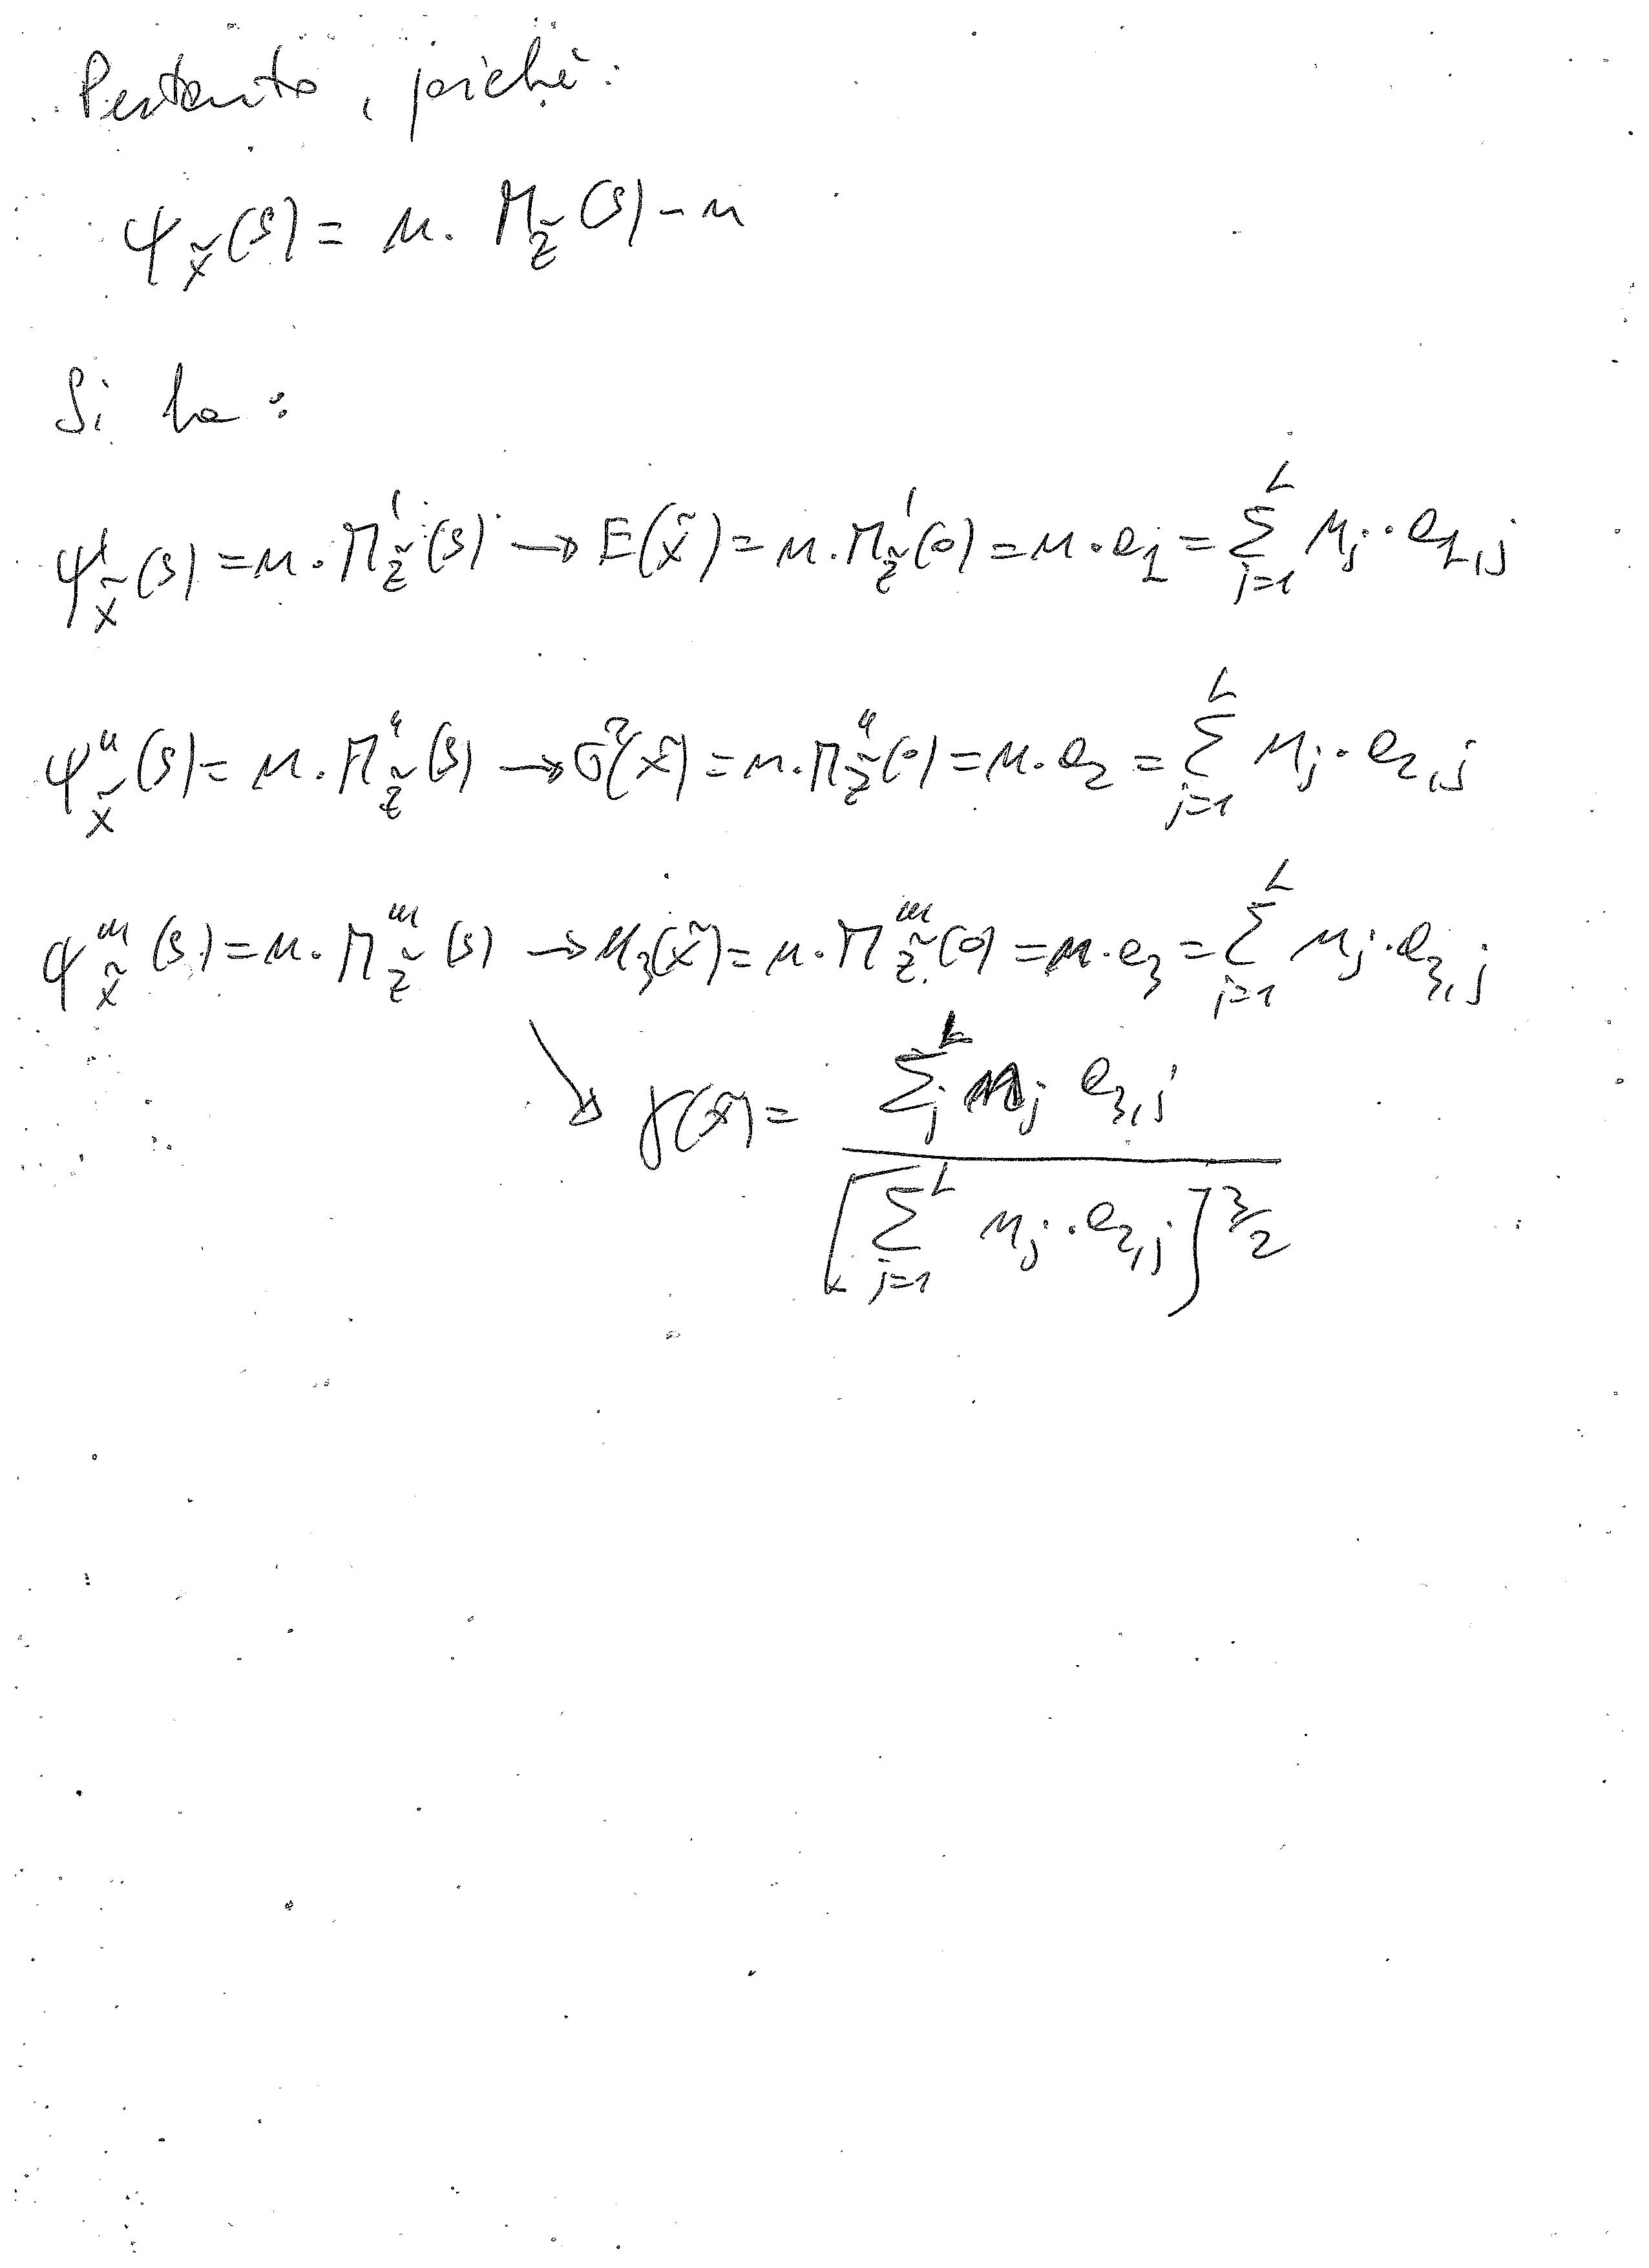 Pertanto, poiché:
Ψ_x̃(s) = n · M_z̃(s) - n
Si ha:
Ψ'_x̃(s) = n · M'_z̃(s) → E(x̃) = n · M'_z̃(0) = n · a_1 = Σ_{j=1}^{L} n_j · a_{1,j}
Ψ''_x̃(s) = n · M''_z̃(s) → σ²(x̃) = n · M''_z̃(0) = n · a_2 = Σ_{j=1}^{L} n_j · a_{2,j}
Ψ'''_x̃(s) = n · M'''_z̃(s) → μ_3(x̃) = n · M'''_z̃(0) = n · a_3 = Σ_{j=1}^{L} n_j · a_{3,j}
↘ γ(x̃) = Σ_j^L n_j a_{3,j} / [Σ_{j=1}^{L} n_j · a_{2,j}]^{3/2}